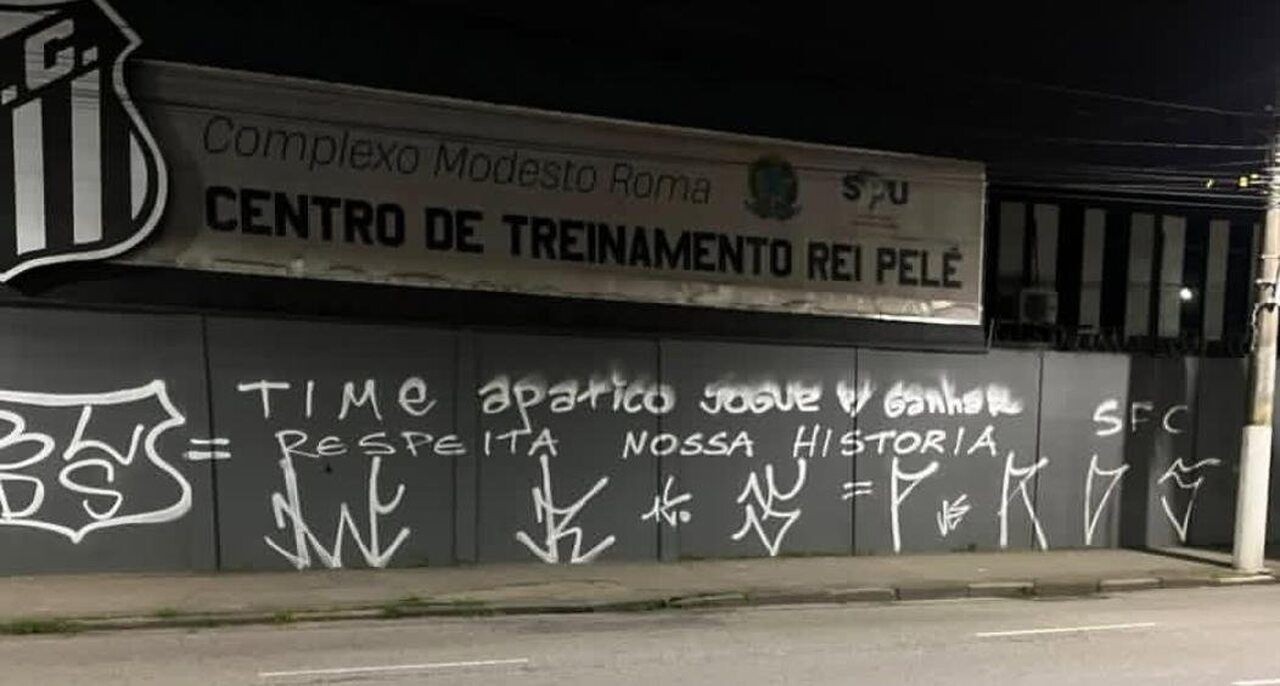 .G.
Complexo Modesto Roma
spu
CENTRO DE TREINAMENTO REI PELÉ
= TIME apatico JOGUE P/ GanhaR
RESPEITA NOSSA HISTORIA
SFC